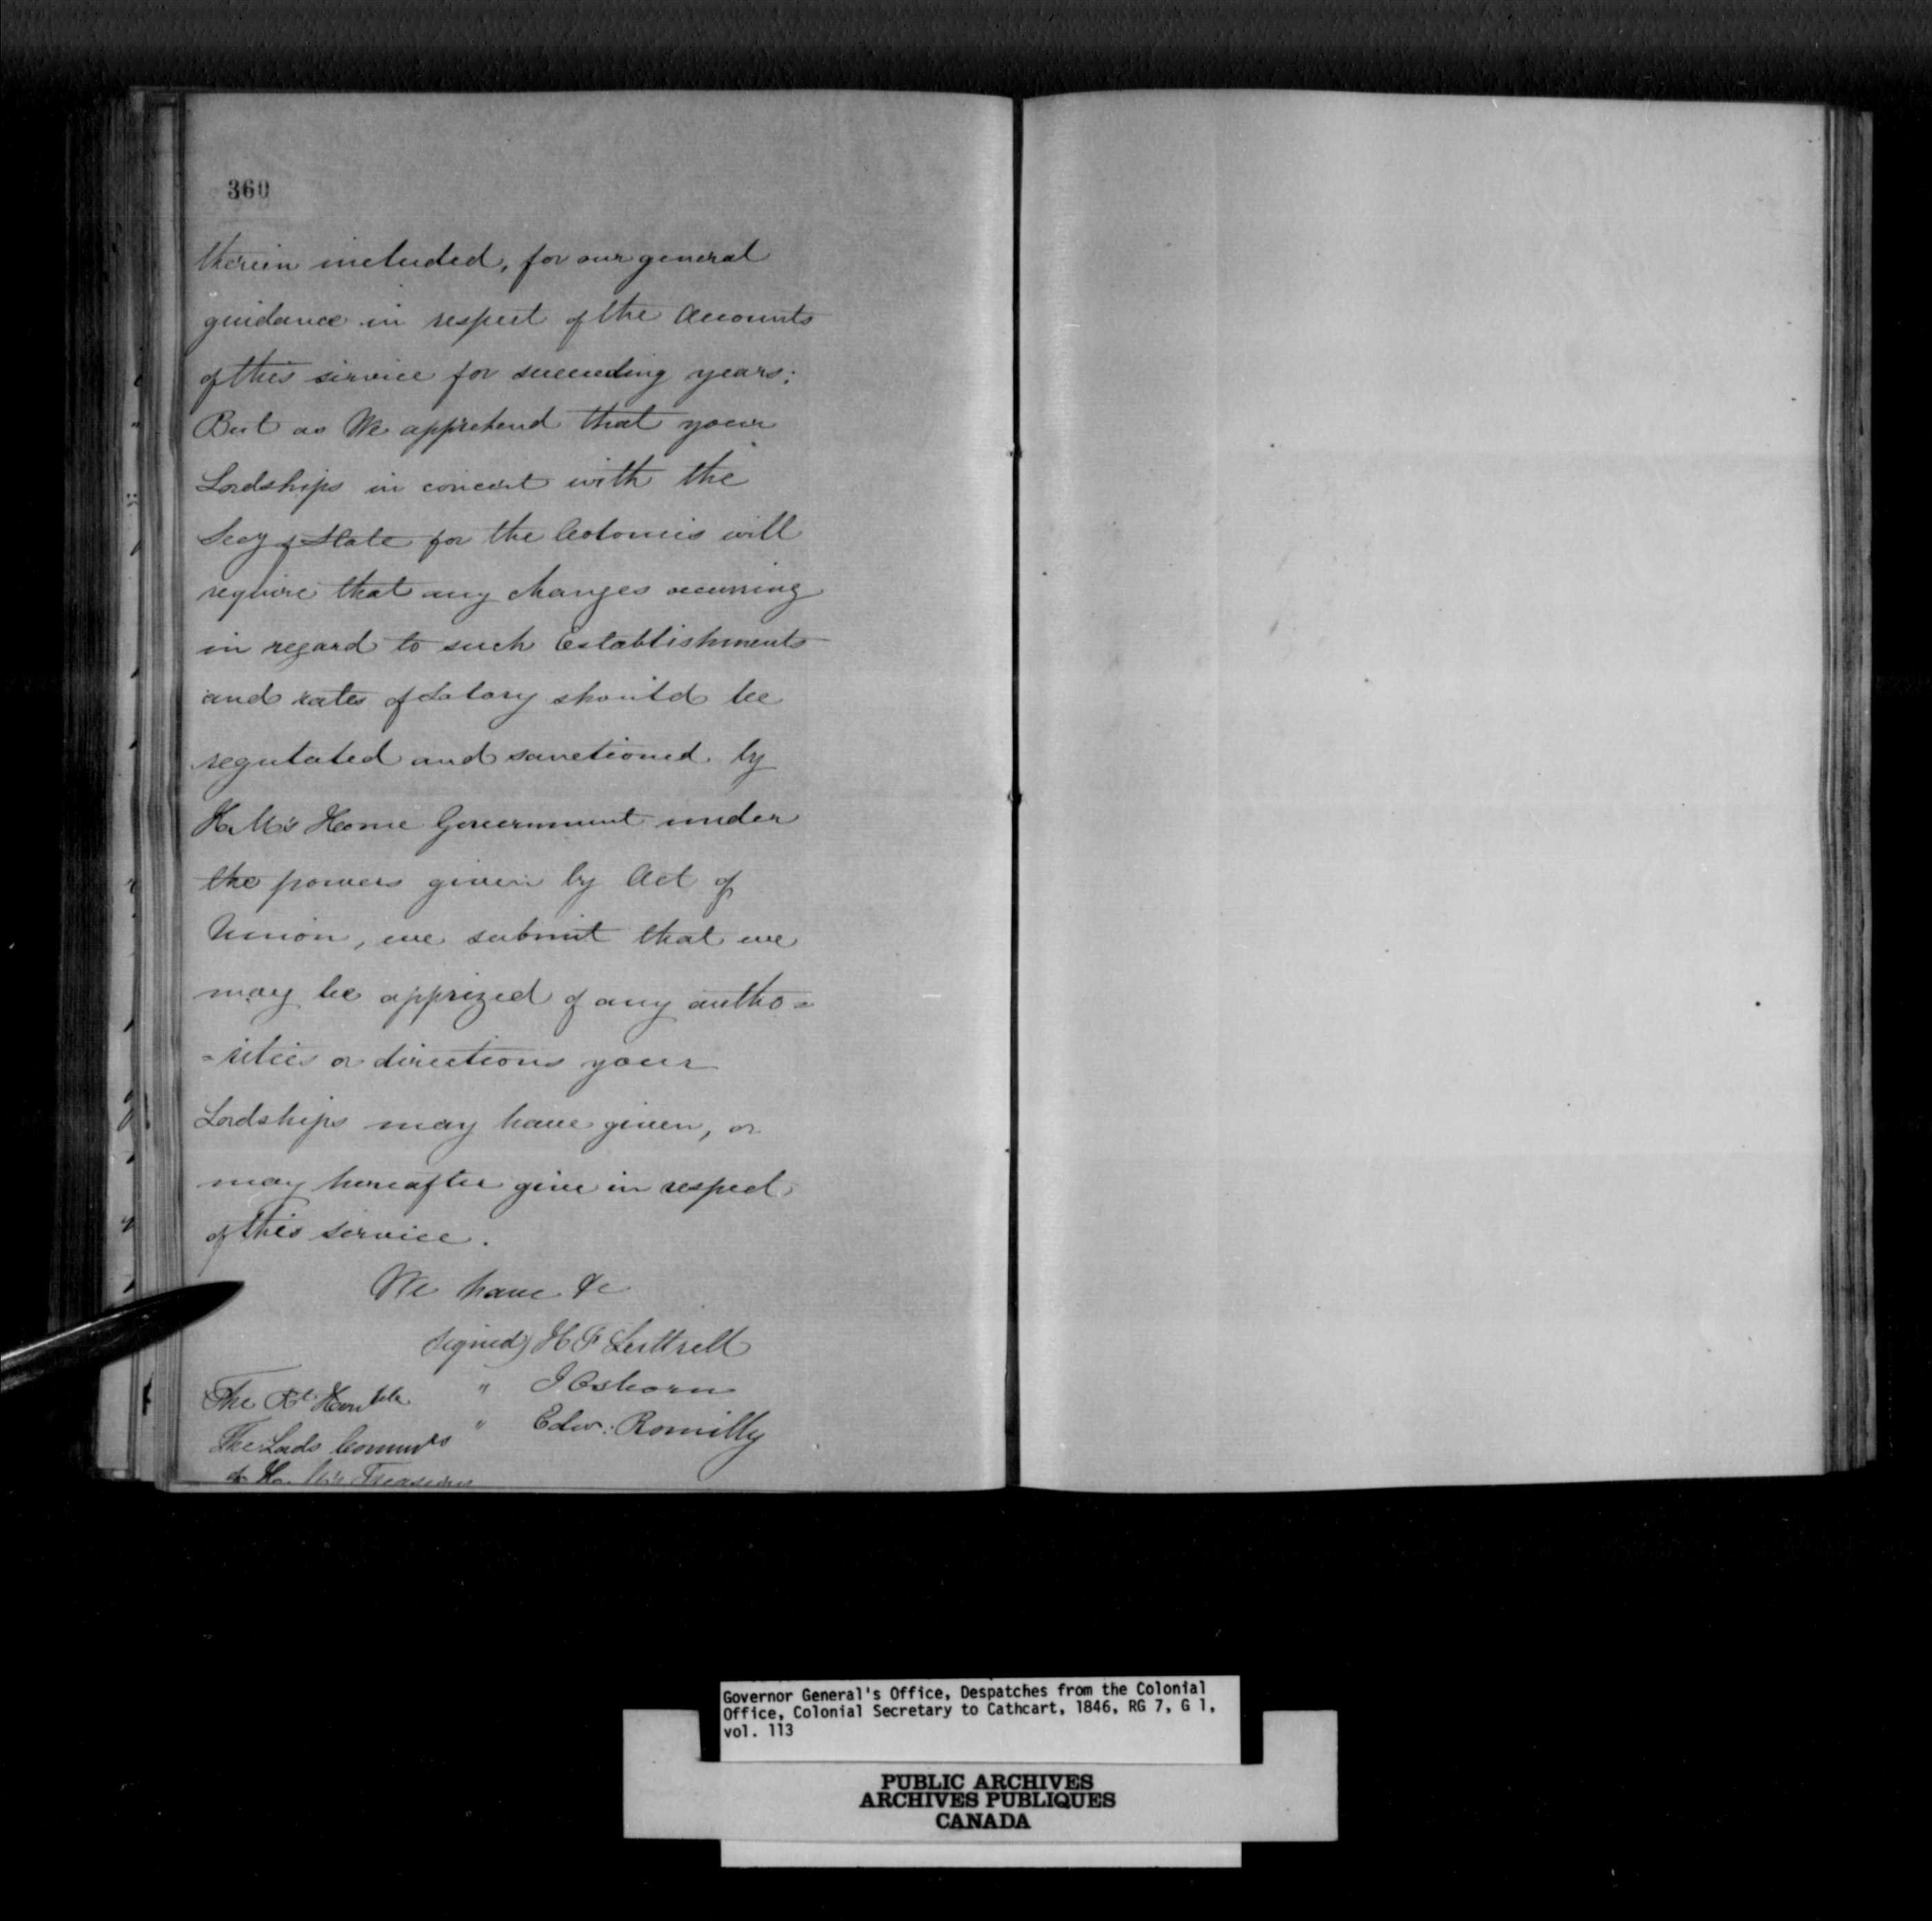 360
therein included, for our general
guidance in respect of the Accounts
of this service for succeeding years;
But as We apprehend that your
Lordships in concert with the
Secy of State for the Colonies will
require that any changes occurring
in regard to such Establishments
and rates of Salary should be
regulated and sanctioned by
H. M's Home Government under
the powers given by Act of
Union, we submit that we
may be apprized of any autho=
=rities or directions your
Lordships may have given, or
may hereafter give in respect
of this service.
We have &c
signed) H F Luttrell
" J Osborn
" Edw: Romilly
The Rt Honble
The Lords Commrs
of H. M's Treasury
Governor General's Office, Despatches from the Colonial
Office, Colonial Secretary to Cathcart, 1846, RG 7, G 1,
vol. 113
PUBLIC ARCHIVES
ARCHIVES PUBLIQUES
CANADA